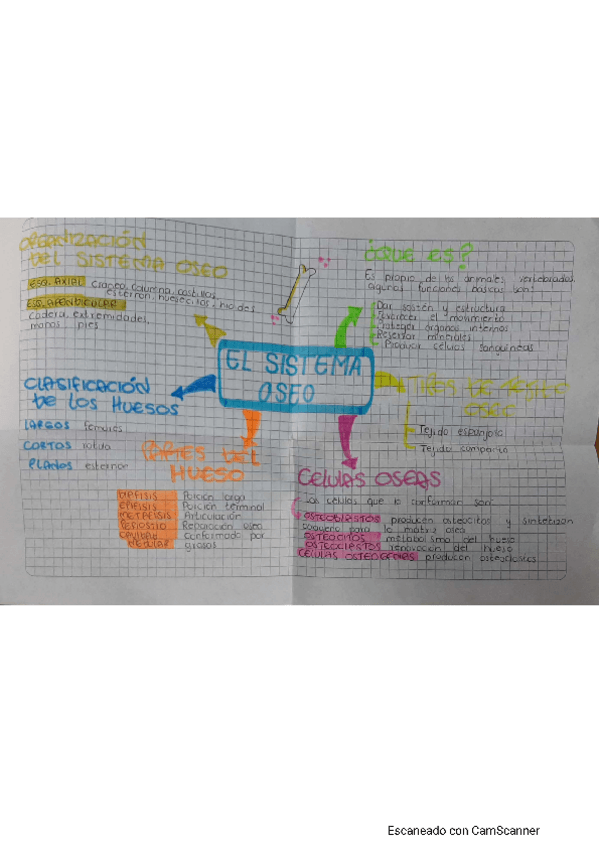 ORGANIZACIÓN
DEL SISTEMA OSEO
ESQ. AXIAL Craneo, columna, costillas,
esternon, huesecitos, hioides
ESQ. APENDICULAR
Cadera, extremidades,
manos pies
¿QUE ES?
Es propio de los animales vertebrados
algunas funciones basicas son:
Dar sostén y estructura
Favorecer el movimiento
Proteger órganos internos
Reservar minerales
Producir celulas sanguineas
EL SISTEMA
OSEO
CLASIFICACIÓN
DE LOS HUESOS
LARGOS femores
CORTOS rotula
PLANOS esternon
TIPOS DE TEJIDO
OSEO
Tejido esponjoso
Tejido compacto
PARTES DEL
HUESO
DIAFISIS Porción larga
EPIFISIS Porción terminal
METAFISIS Articulación
PERIOSTIO Reparación oseo
CAVIDAD Conformado por
MEDULAR grasas
CELULAS OSEAS
Las celulas que lo conforman son:
OSTEOBLASTOS producen osteocitos y sintetizan
colageno para la matriz osea
OSTEOCITOS metabolismo del hueso
OSTEOCLASTOS renovación del hueso
CELULAS OSTEOGENAS producen osteoblastos
Escaneado con CamScanner